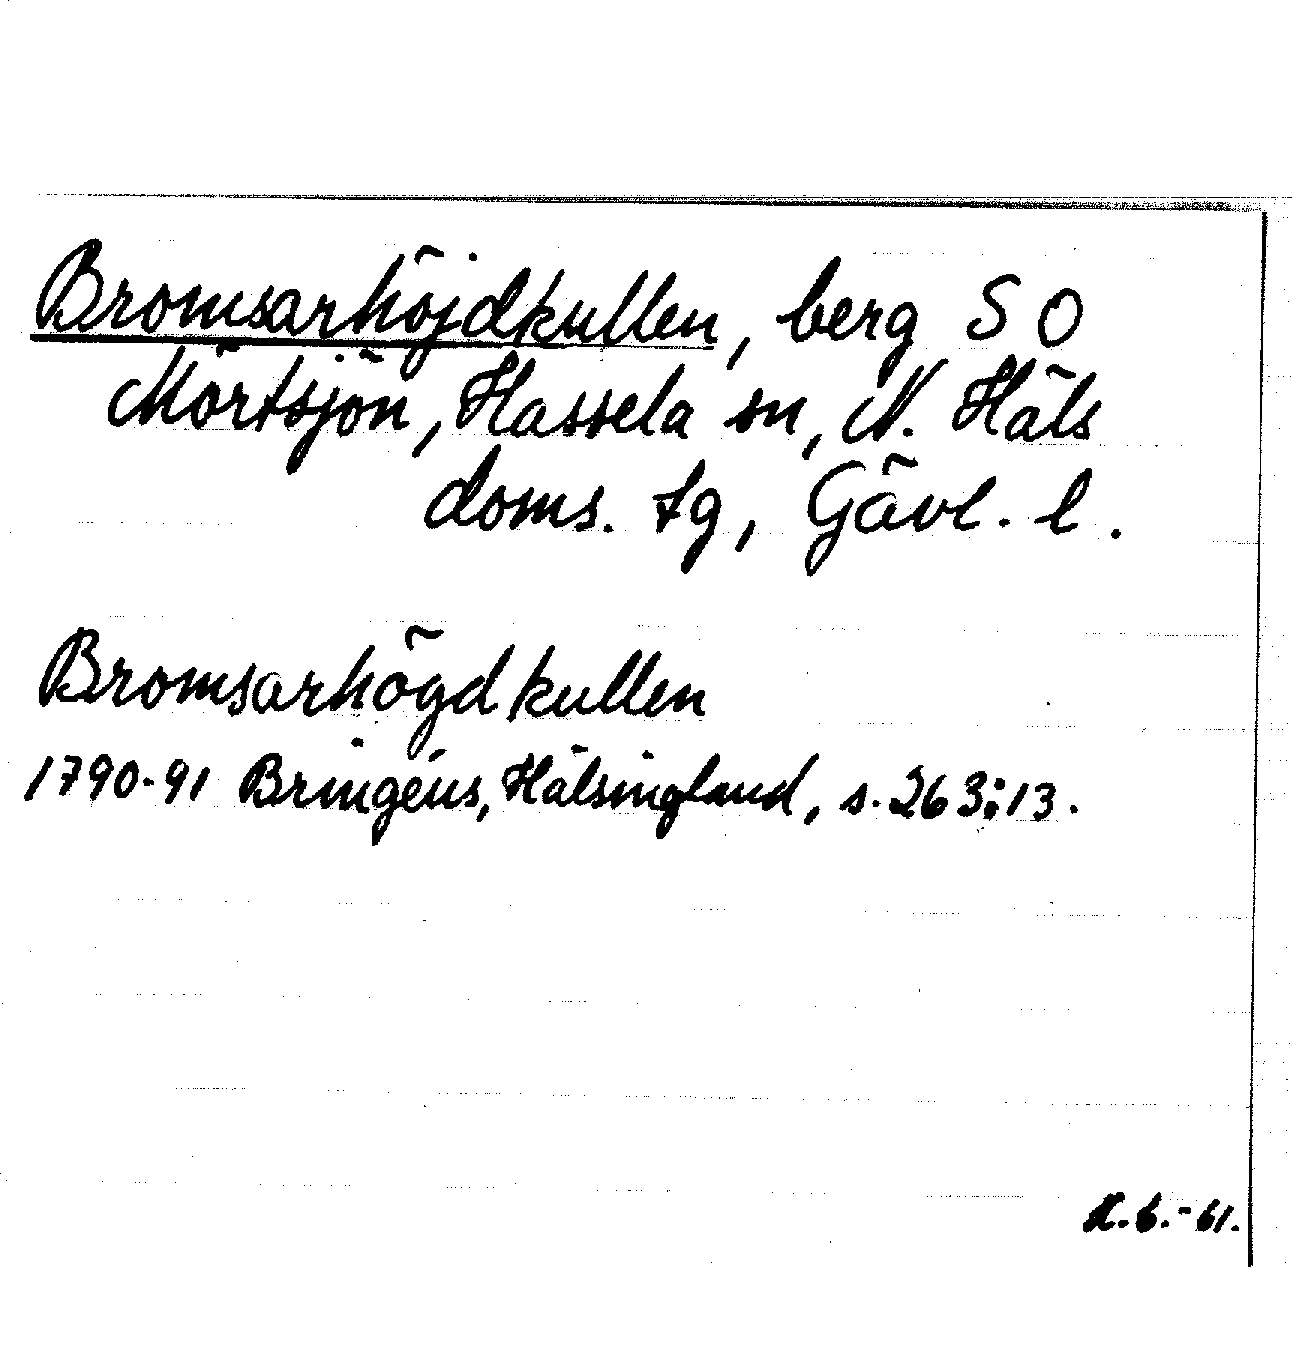 Bromsarhöjdkullen, berg S O
Mörtsjön, Hassela sn, N. Häls
doms. tg, Gävl. l.
Bromsarhögdkullen
1790-91 Bringéus, Hälsingland, s. 263:13.
-61.